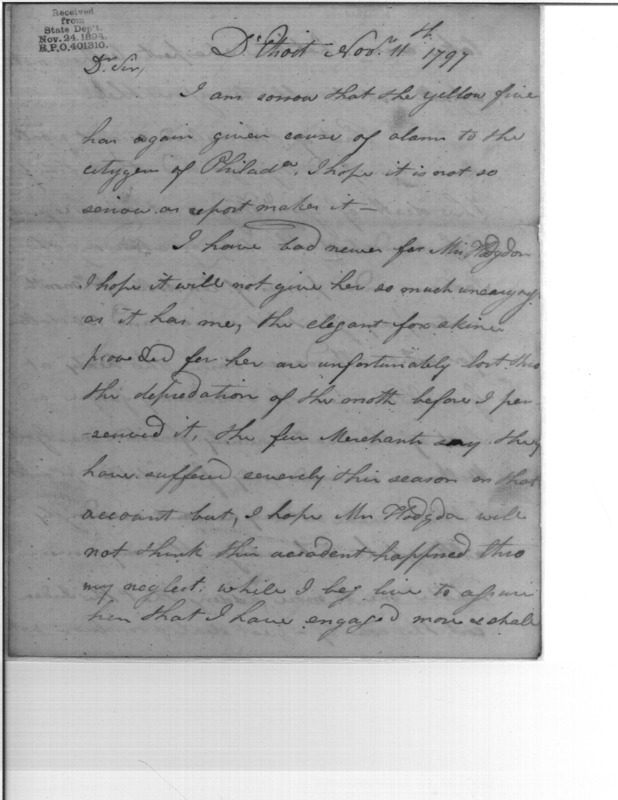 Received
from
State Dep't.
Nov. 24. 1894.
R.P.O. 401310.
D'Etroit Nov.r 11th 1797
Dr Sir,
I am sorrow that the yellow five
has again given cause of alarm to the
citygen of Philada. I hope it is not so
seriow as report makes it —
I have bad newes for Mrs Hodgdon
I hope it will not give her so much uneasyng
as it has me, the elegant fox skins
provided for her are unfortunately lost thro
the depredation of the moth before I per-
-seived it, the fur Merchants say they
have suffered severely this season on that
account but, I hope Mrs Hodgdon will
not think this accadent happned thro
my neglect: while I beg live to assure
her that I have engaged more & shall